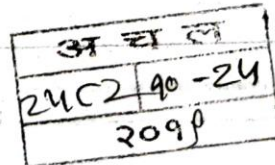 अ च ल
२५८२ १०-२५
२०१९